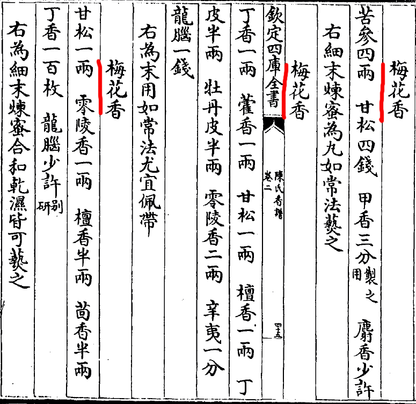 苦參四兩 甘松四錢 甲香三分製之用 麝香少許
右細末煉蜜為丸如常法爇之
梅花香
欽定四庫全書
陳氏香譜
卷二
丁香一兩 藿香一兩 甘松一兩 檀香一兩 丁
皮半兩 牡丹皮半兩 零陵香二兩 辛夷一分
龍腦一錢
右為末用如常法尤宜佩帶
梅花香
甘松一兩 零陵香一兩 檀香半兩 茴香半兩
丁香一百枚 龍腦少許別研
右為細末煉蜜合和乾濕皆可爇之